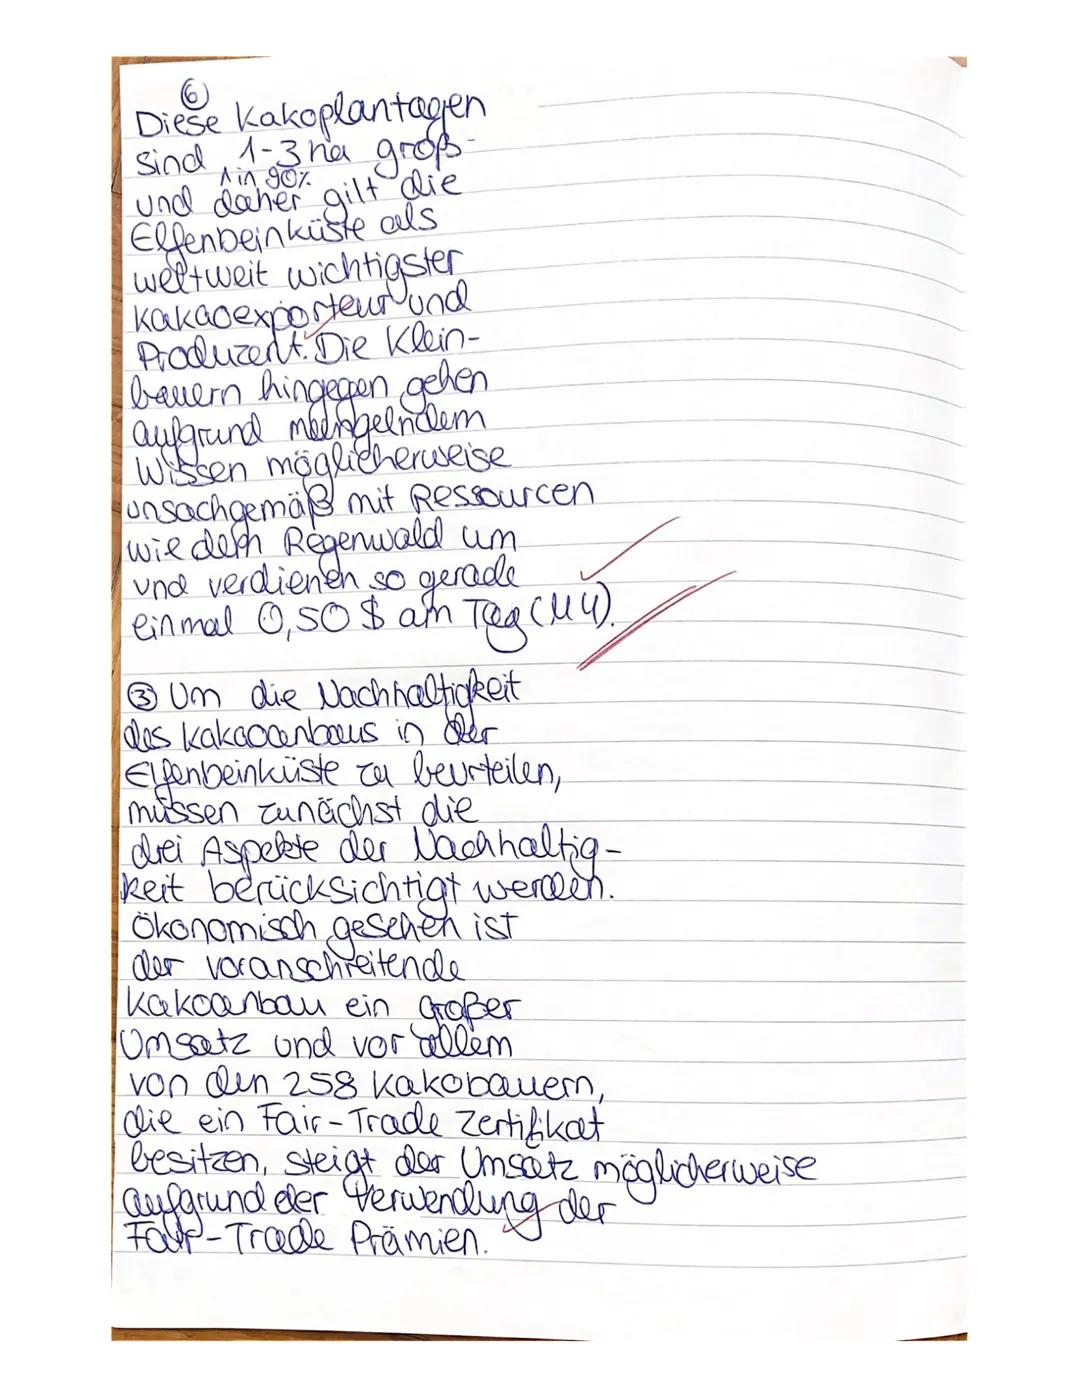 ⑥
Diese Kakoplantagen
sind 1-3 ha groß
1 in 90%
und daher gilt die
Elfenbeinküste als
weltweit wichtigster
Kakaoexporteur und
Produzent. Die Klein-
bauern hingegen gehen
aufgrund mangelndem
Wissen möglicherweise
unsachgemäß mit Ressourcen
wie dem Regenwald um
und verdienen so gerade
einmal 0,50 $ am Tag (M4).
③ Um die Nachhaltigkeit
des Kakaoanbaus in der
Elfenbeinküste zu beurteilen,
müssen zunächst die
drei Aspekte der Nachhaltig-
keit berücksichtigt werden.
Ökonomisch gesehen ist
der voranschreitende
Kakoanbau ein großer
Umsatz und vor allem
von den 258 Kakobauern,
die ein Fair-Trade Zertifikat
besitzen, steigt der Umsatz möglicherweise
aufgrund der Verwendung der
Fair-Trade Prämien.